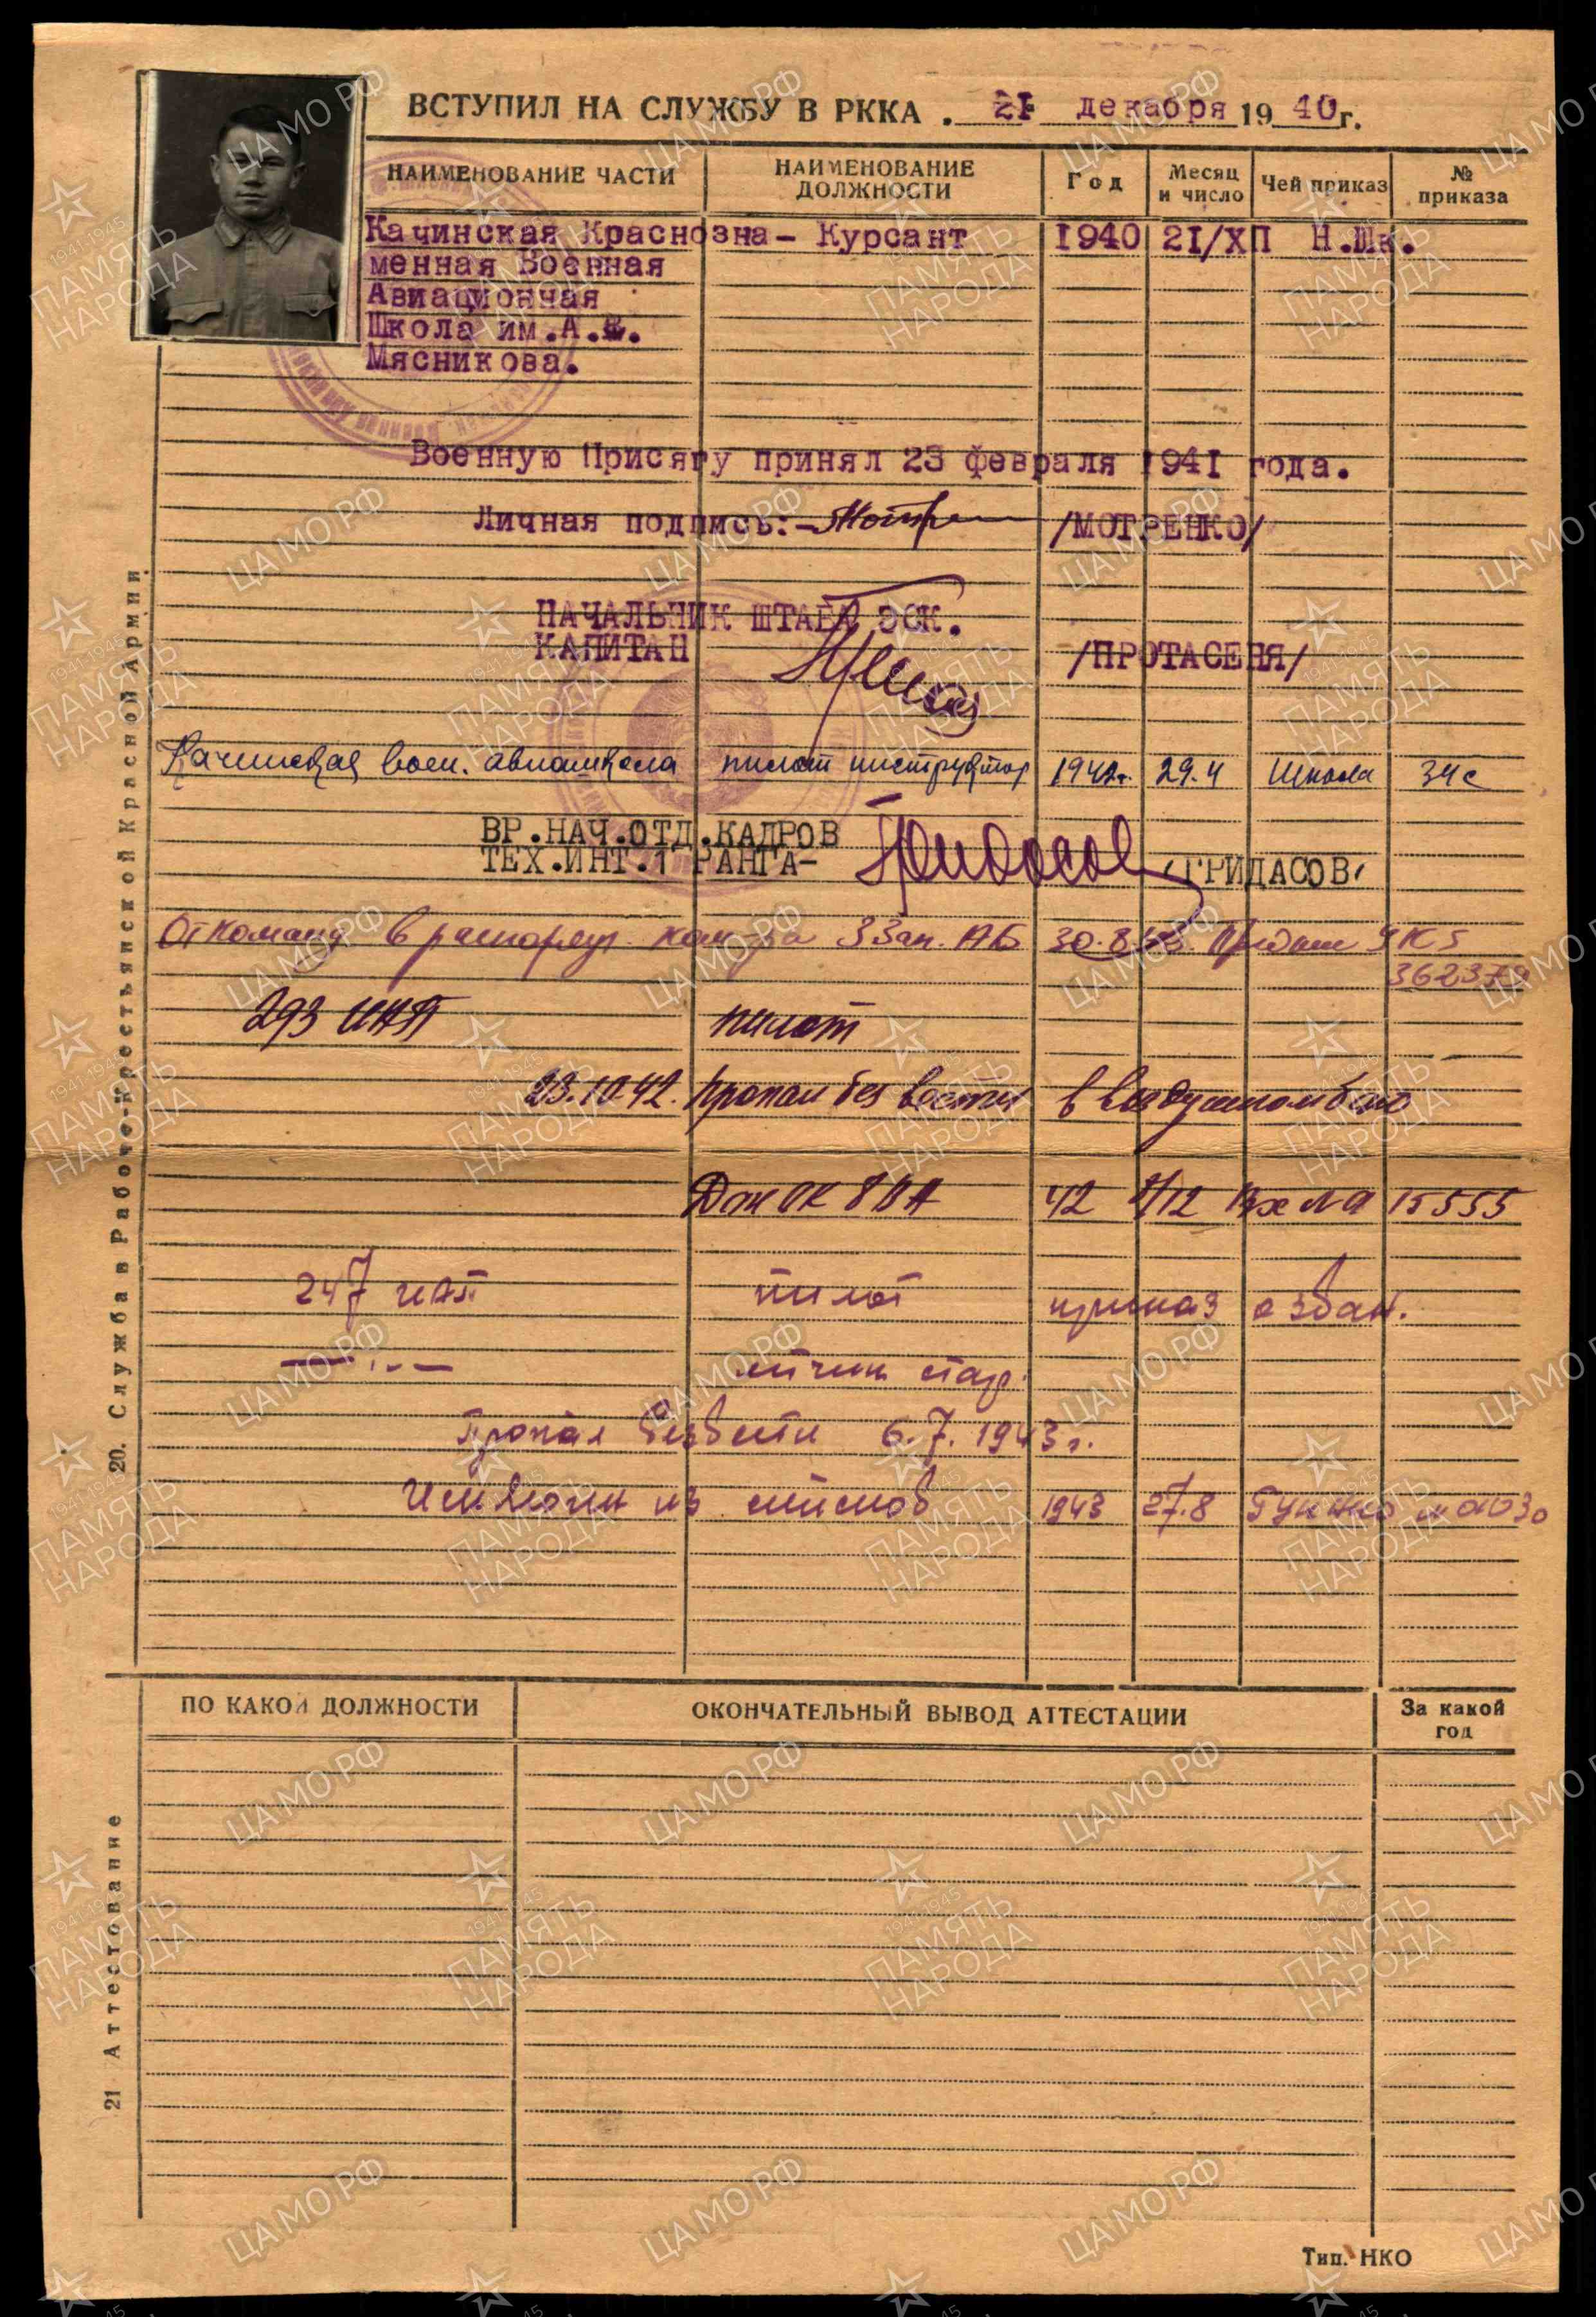 ВСТУПИЛ НА СЛУЖБУ В РККА . 21 декабря 1940 г.
НАИМЕНОВАНИЕ ЧАСТИ НАИМЕНОВАНИЕ ДОЛЖНОСТИ Год Месяц и число Чей приказ № приказа
Качинская Краснозна- Курсант 1940 21/ХП Н.Шк.
менная Военная
Авиационная
Школа им.А.
Мясникова.
Военную Присягу принял 23 февраля 1941 года.
Личная подпись:- /МОТРЕНКО/
НАЧАЛЬНИК ШТАБА ЭСК.
КАПИТАН /ПРОТАСЕНЯ/
Качинская воен. авиашкола пилот инструктор 1942г. 29.4 Школа 34с
ВР.НАЧ.ОТД.КАДРОВ
ТЕХ.ИНТ.1 РАНГА- Гридасов /ГРИДАСОВ/
Откоманд в распоряж. ком-ра 3 Зап. АБ 30.8
293 ИАП пилот
23.10.42. Пропал без вести в воздушном бою
Дон ОК 8 ВА 42 /12 Вх № 15555
247 иап пилот приказ о зван.
—·،·— летчик стар.
Пропал безвести 6.7.1943г.
Исключен из списков 1943 27.8 ГУК НКО № 01030
20. Служба в Рабоче-Крестьянской Красной Армии
ПО КАКОЙ ДОЛЖНОСТИ ОКОНЧАТЕЛЬНЫЙ ВЫВОД АТТЕСТАЦИИ За какой год
21 Аттестование
Тип. НКО
ЦАМО РФ
1941-1945
ПАМЯТЬ
НАРОДА